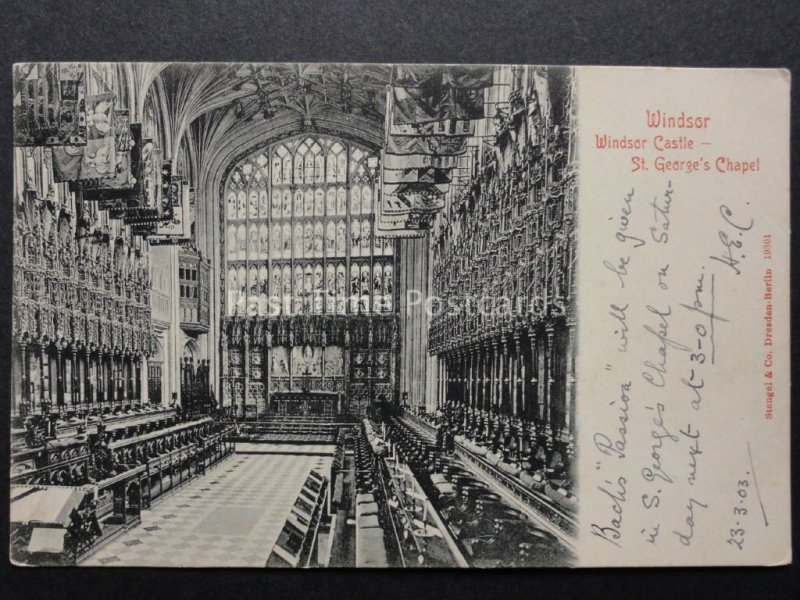 Windsor
Windsor Castle –
St. George's Chapel
Bach's "Passion" will be given
in S. George's Chapel on Satur-
day next at 3-0 pm.
H.E.C.
23.3.03.
Stengel & Co. Dresden-Berlin 19301
Past Time Postcards